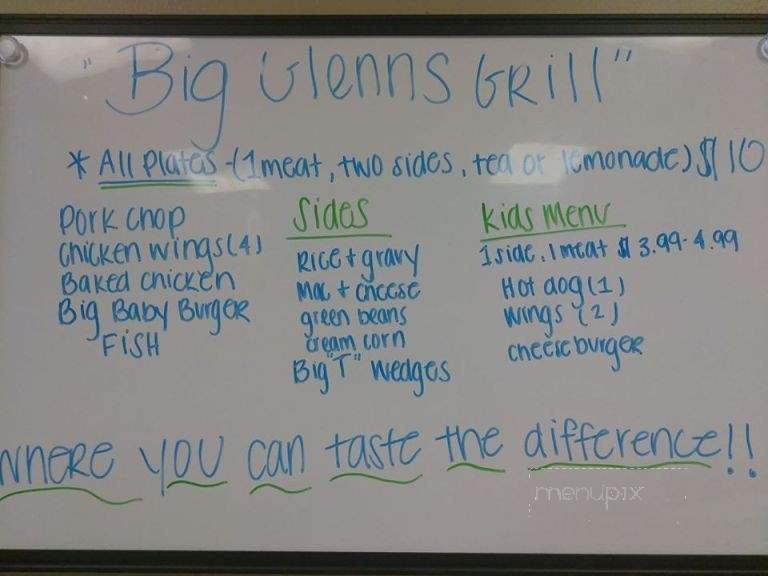 "Big Glenns Grill"
* All Plates - (1 meat, two sides, tea or lemonade) $10
Pork chop
chicken wings (4)
Baked chicken
Big Baby Burger
FISH
Sides
Rice + gravy
Mac + cheese
green beans
cream corn
Big "T" wedges
Kids Menu
1 side, 1 meat $ 3.99 - 4.99
Hot dog (1)
wings (2)
cheeseburger
Where you can taste the difference!!
menupix